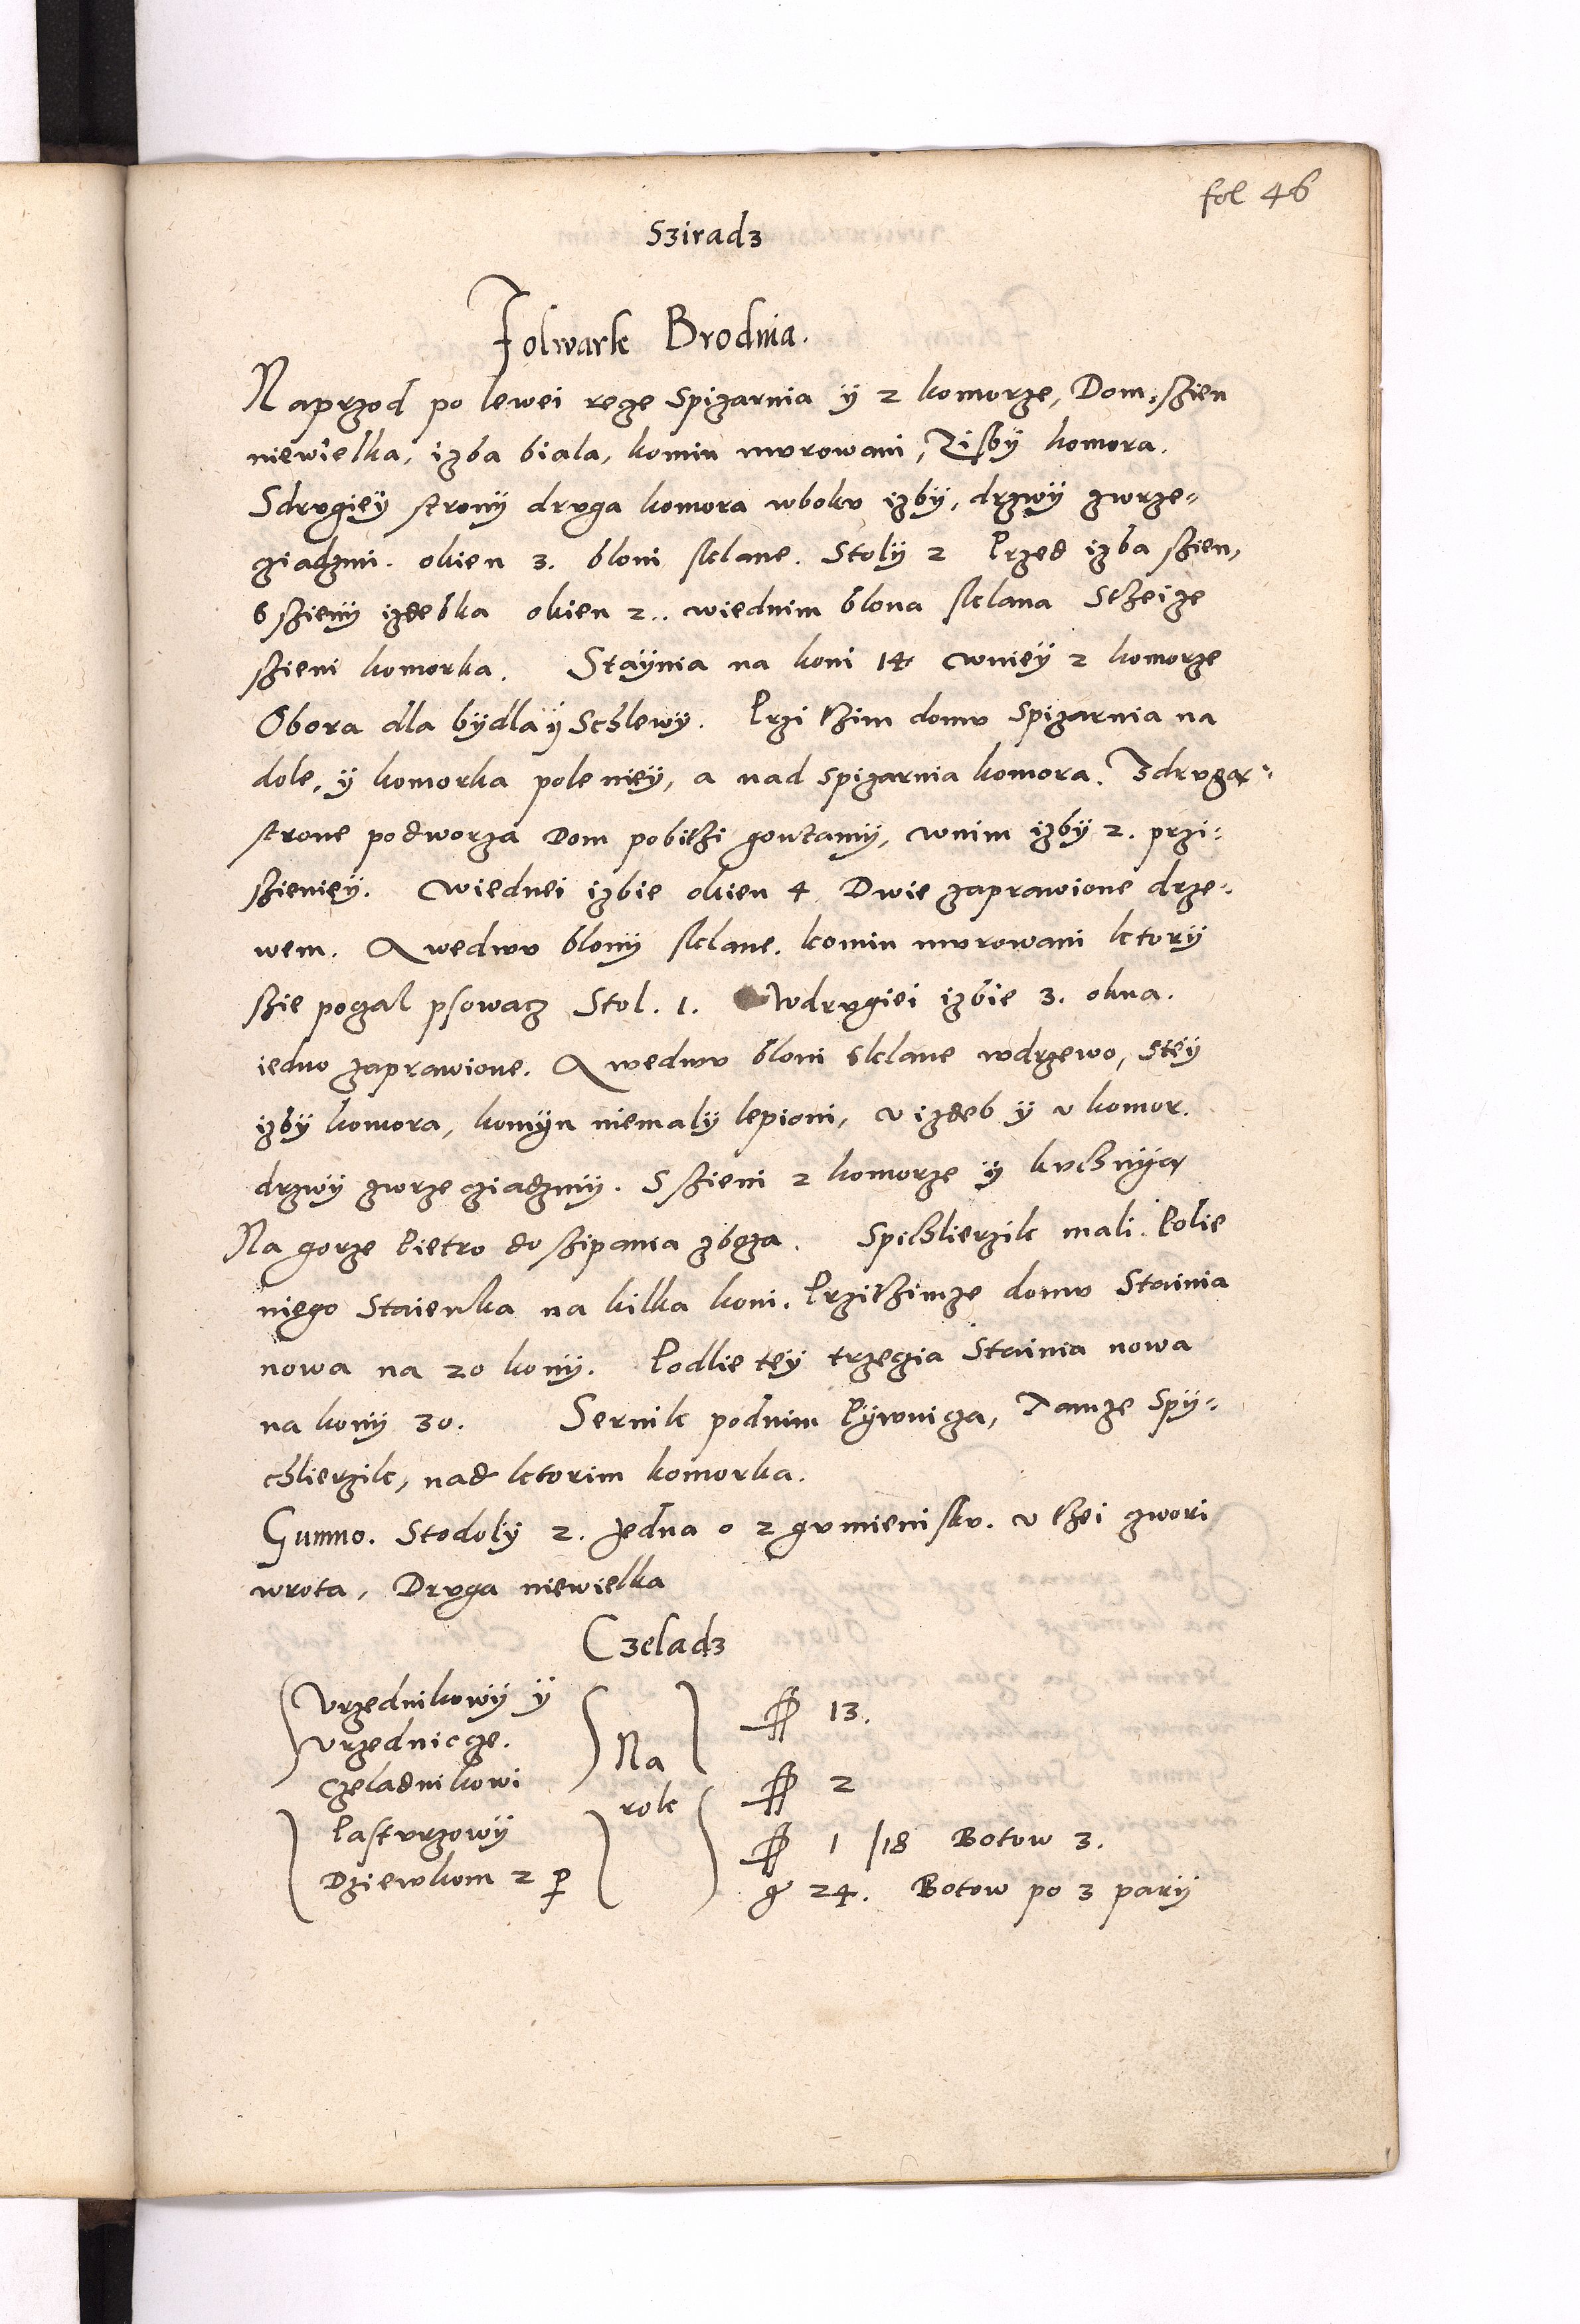 fol 46
Sziradz
Folwark Brodnia.
Naprzod po lewei reze Spizarnia ÿ 2 komorze, Dom, szien
niewielka, izba biala, komin mvrowani, Zisbÿ komora.
Sdrvgieÿ stronÿ drvga komora wbokv izbÿ, drzwÿ zwrze-
ziadzmi. okien 3. bloni sklane. Stolÿ 2 Przed izba szien,
6 szienÿ izdebka okien 2.. wiednim blona sklana Stzeize
szieni komorka. Staÿnia na koni 14 wnieÿ 2 komorze
Obora dla bÿdla ÿ Schlewÿ. Przi tzim domv Spizarnia na
dole, ÿ komorka pole nieÿ, a nad spizarnia komora. Zdrvga-
strone podworza Dom pobitzi gontamÿ, wnim izbÿ 2. przi-
szienieÿ. Wiednei izbie okien 4 Dwie zaprawione drze-
wem. A wedwv blonÿ sklane. komin mvrowani ktorÿ
szie pozal psowacz Stol. 1. Wdrvgiei izbie 3. okna.
iedno zaprawione. A wedwv bloni sklane wdrzewo, Steÿ
izbÿ komora, komÿn niemalÿ lepioni, v izdeb ÿ v komor.
drzwÿ zwrze cziadzmÿ. S szieni 2 komorze ÿ kvchnÿa
Na gorze Pietro do szipania zboza. Spichlierzik mali. Polie
niego Staienka na kilka koni. Przitzimze domv Stainia
nowa na 20 konÿ. Podlie teÿ trzezia Stainia nowa
na konÿ 30. Sernik podnim Pÿwnicza, Tamze Spÿ-
chlierzik, nad ktorim komorka.
Gumno. Stodolÿ 2. Jedna o 2 gvmienisku. v tzei zwori
wrota, Drvga niewielka
Czeladz
Vrzednikowÿ ÿ
Vrzednicze. Na 13.
Czeladnikowi rok 2
Pastvrzowÿ 1 /18 Botow 3.
Dziewkom 2 p g 24. Botow po 3 parÿ